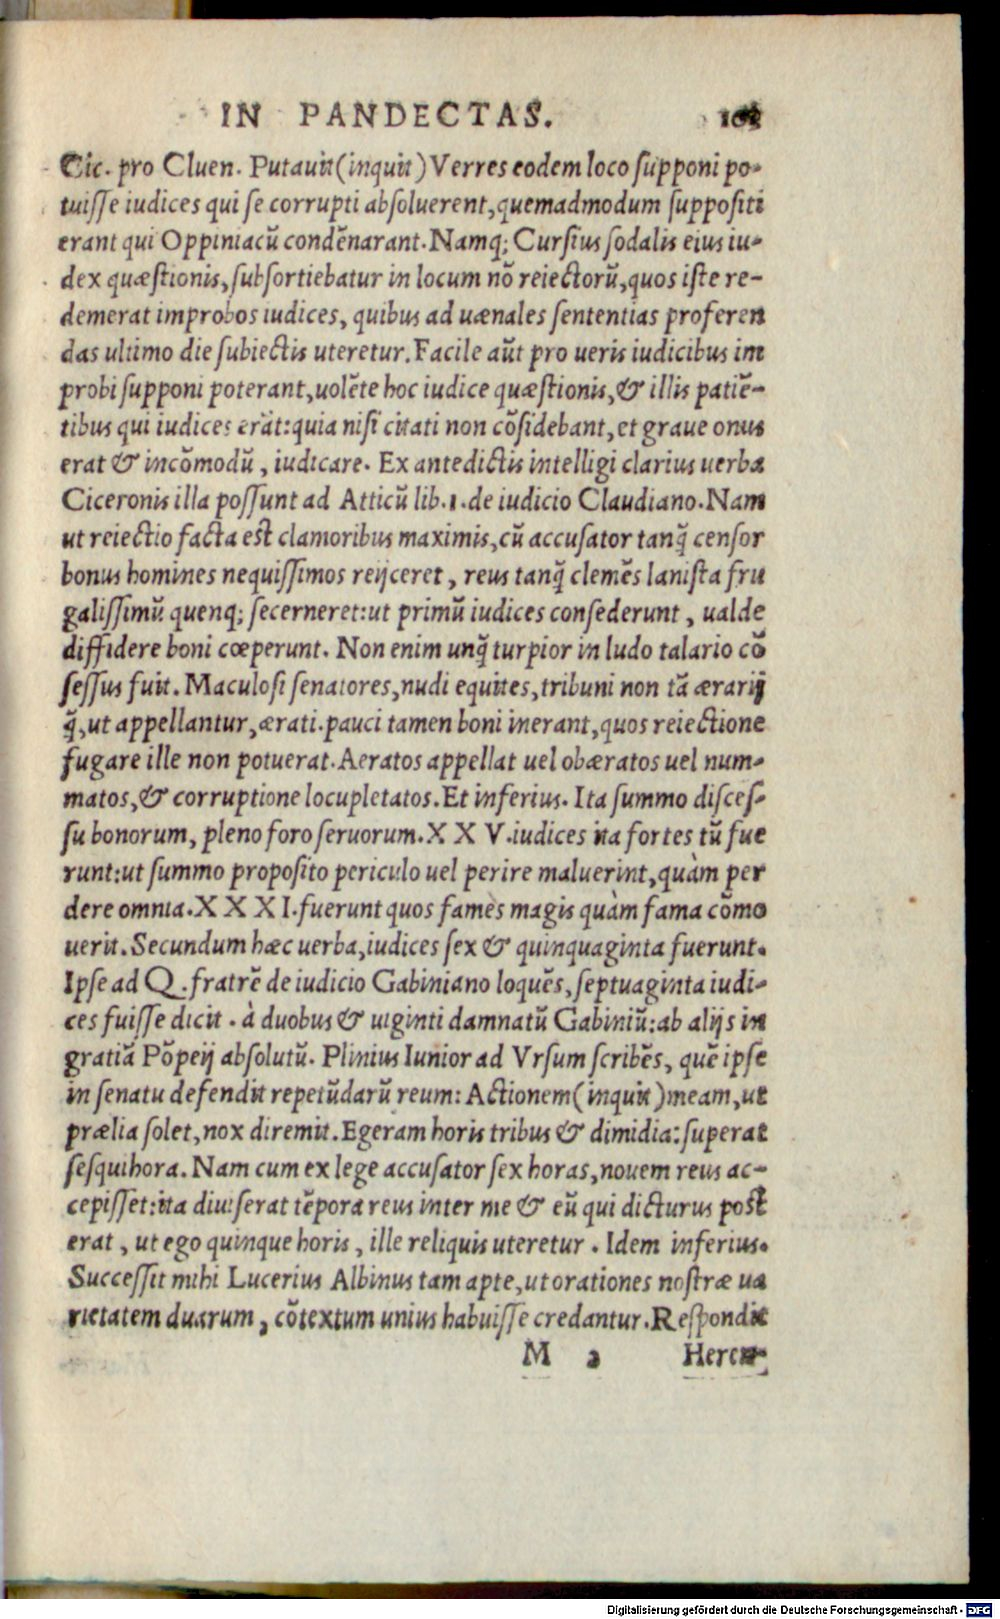 IN PANDECTAS.
Cic. pro Cluen. Putauit (inquit) Verres eodem loco supponi po-
tuisse iudices qui se corrupti absoluerent, quemadmodum suppositi
erant qui Oppiniacū condēnarant. Namq; Cursius sodalis eius iu-
dex quæstionis, subsortiebatur in locum nō reiectorū, quos iste re-
demerat improbos iudices, quibus ad uænales sententias proferen
das ultimo die subiectis uteretur. Facile aūt pro ueris iudicibus im
probi supponi poterant, uolēte hoc iudice quæstionis, & illis patiē-
tibus qui iudices erāt: quia nisi citati non cōsidebant, et graue onus
erat & incōmodū, iudicare. Ex antedictis intelligi clarius uerba
Ciceronis illa possunt ad Atticū lib. 1. de iudicio Claudiano. Nam
ut reiectio facta est clamoribus maximis, cū accusator tanq̃ censor
bonus homines nequissimos reijceret, reus tanq̃ clemēs lanista fru
galissimū quenq; secerneret: ut primū iudices consederunt, ualde
diffidere boni cœperunt. Non enim unq̃ turpior in ludo talario cō
sessus fuit. Maculosi senatores, nudi equites, tribuni non tā ærarij
q̃, ut appellantur, ærati. pauci tamen boni inerant, quos reiectione
fugare ille non potuerat. Aeratos appellat uel obæratos uel num-
matos, & corruptione locupletatos. Et inferius. Ita summo disces-
su bonorum, pleno foro seruorum. X X V. iudices ita fortes tū fue
runt: ut summo proposito periculo uel perire maluerint, quàm per
dere omnia. X X X I. fuerunt quos famès magis quàm fama cōmo
uerit. Secundum hæc uerba, iudices sex & quinquaginta fuerunt.
Ipse ad Q. fratrē de iudicio Gabiniano loquēs, septuaginta iudi-
ces fuisse dicit. à duobus & uiginti damnatū Gabiniū: ab alijs in
gratiā Pōpeij absolutū. Plinius Iunior ad Vrsum scribēs, quē ipse
in senatu defendit repetūdarū reum: Actionem (inquit) meam, ut
prælia solet, nox diremit. Egeram horis tribus & dimidia: superat
sesquihora. Nam cum ex lege accusator sex horas, nouem reus ac-
cepisset: ita diuiserat tēpora reus inter me & eū qui dicturus post
erat, ut ego quinque horis, ille reliquis uteretur. Idem inferius.
Successit mihi Lucerius Albinus tam apte, ut orationes nostræ ua
rietatem duarum, cōtextum unius habuisse credantur. Respondit
M 2 Heren-
Digitalisierung gefördert durch die Deutsche Forschungsgemeinschaft - DFG